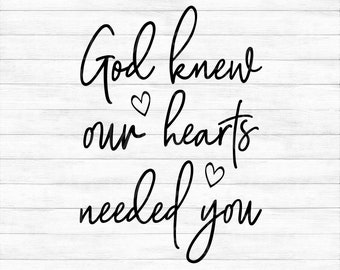 God knew
our hearts
needed you